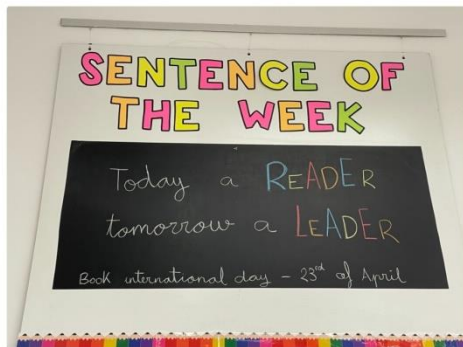 SENTENCE OF
THE WEEK
Today a READER
tomorrow a LEADER
Book international day - 23rd of April